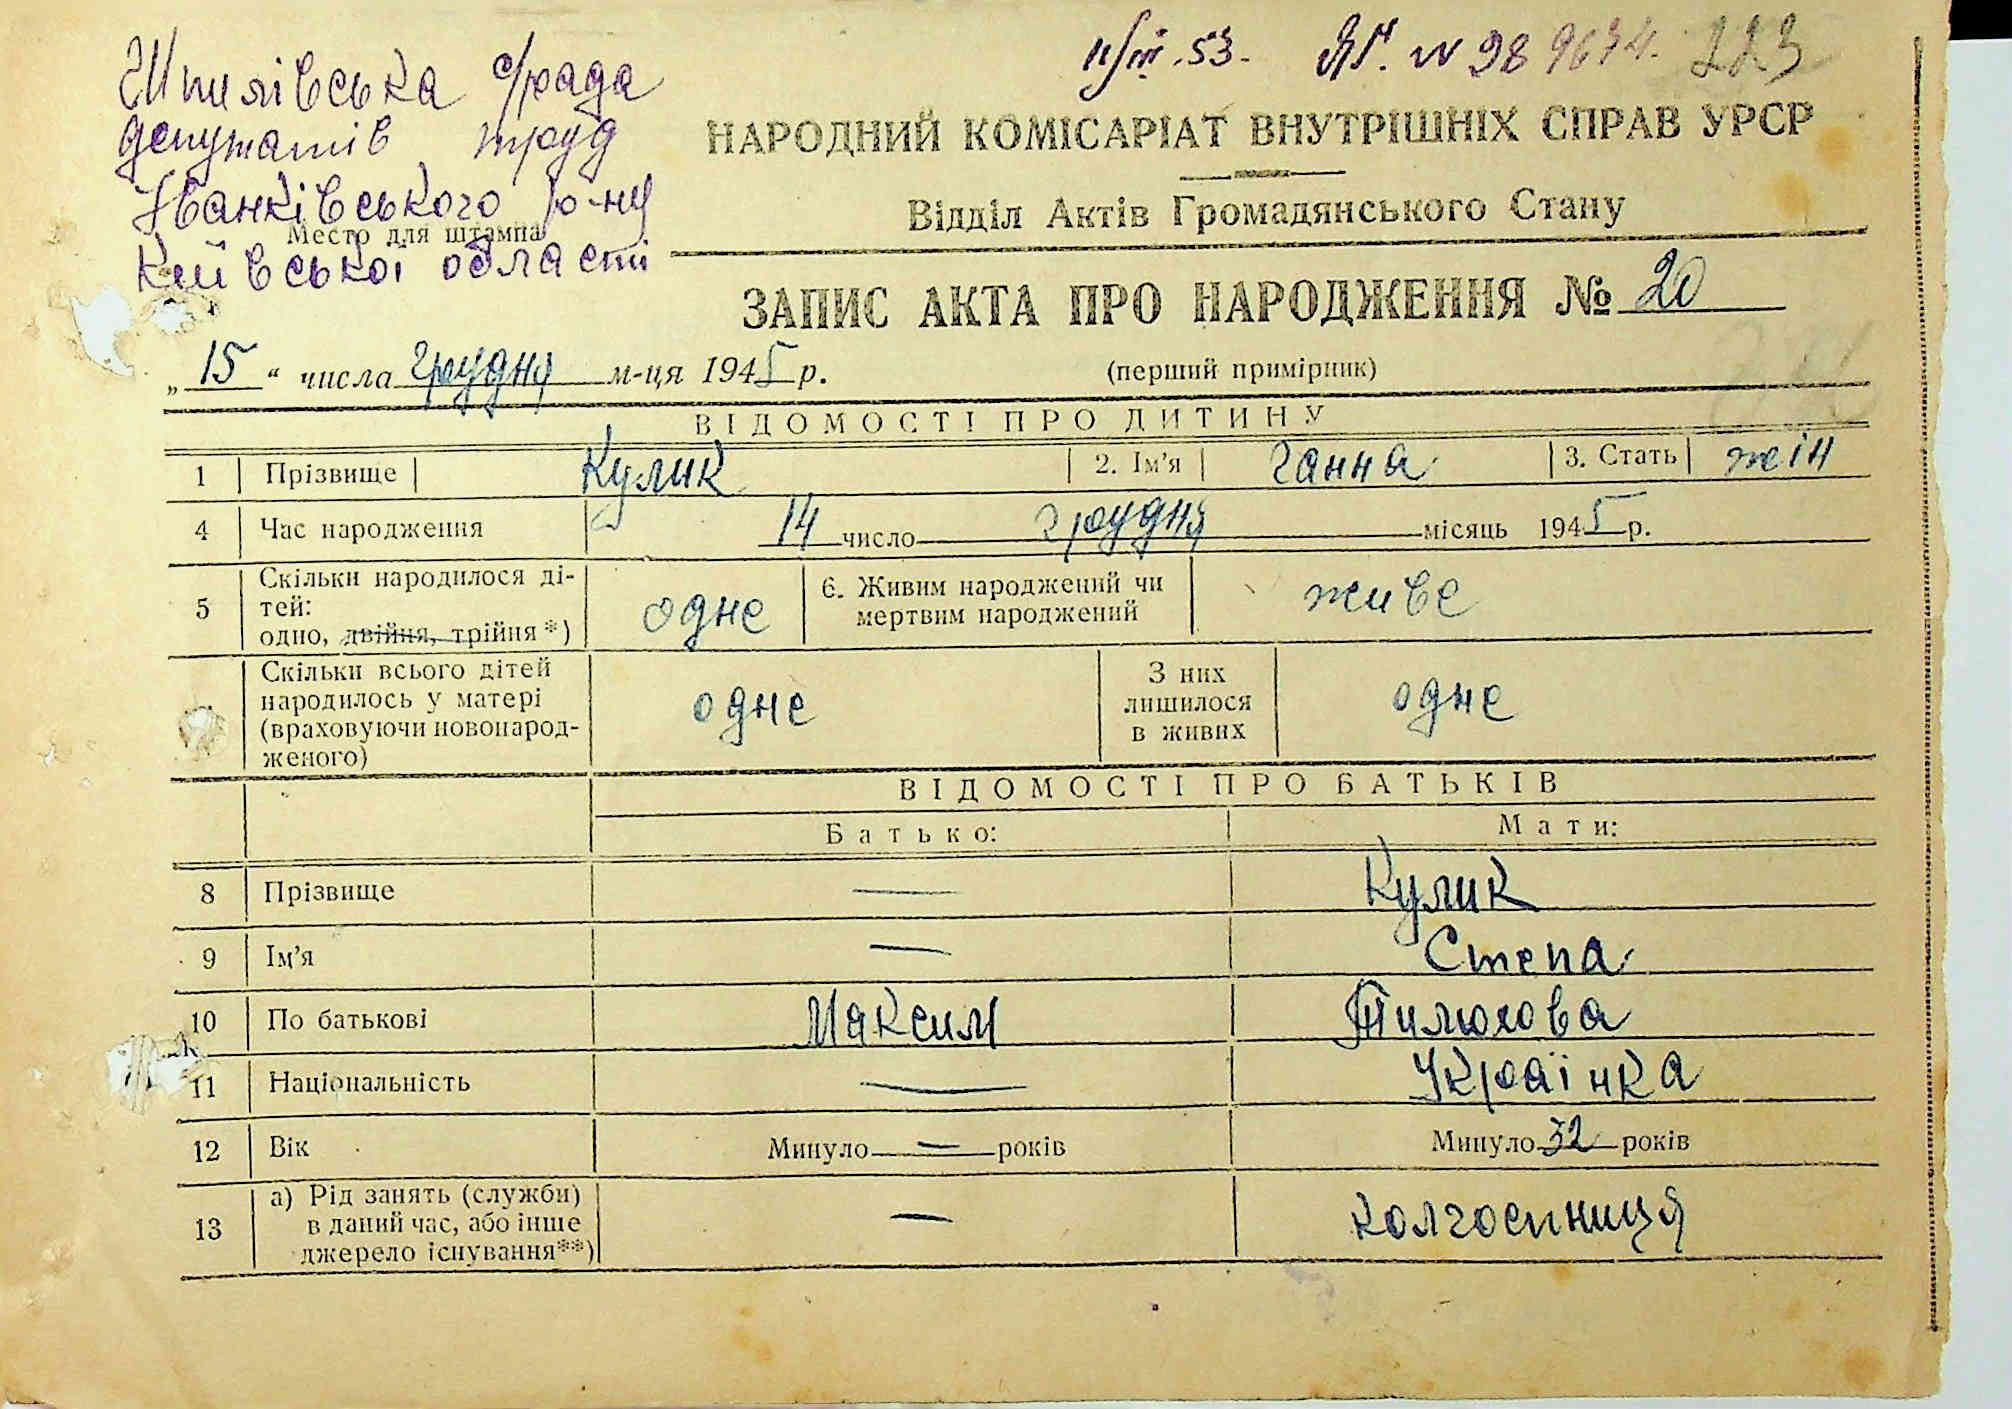 11/III.53. ЯГ. N 98 9674. 223
Шпилівська с/рада
депутатів труд
Іванківського р-ну
Київської області
Место для штампа
НАРОДНИЙ КОМІСАРІАТ ВНУТРІШНІХ СПРАВ УРСР
Відділ Актів Громадянського Стану
ЗАПИС АКТА ПРО НАРОДЖЕННЯ № 20
„15“ числа грудня м-ця 1945 р. (перший примірник)
ВІДОМОСТІ ПРО ДИТИНУ
1 Прізвище Кулик 2. Ім'я Ганна 3. Стать жін
4 Час народження 14 число грудня місяць 1945 р.
5 Скільки народилося ді-
тей:
одно, двійня, трійня*) одне
6. Живим народжений чи
мертвим народжений живе
Скільки всього дітей
народилось у матері
(враховуючи новонарод-
женого) одне
З них
лишилося
в живих одне
ВІДОМОСТІ ПРО БАТЬКІВ
Батько: Мати:
8 Прізвище — Кулик
9 Ім'я — Степа
10 По батькові Максим Тилюхова
11 Національність — Українка
12 Вік Минуло — років Минуло 32 років
13 а) Рід занять (служби)
в даний час, або інше
джерело існування**) — колгоспниця